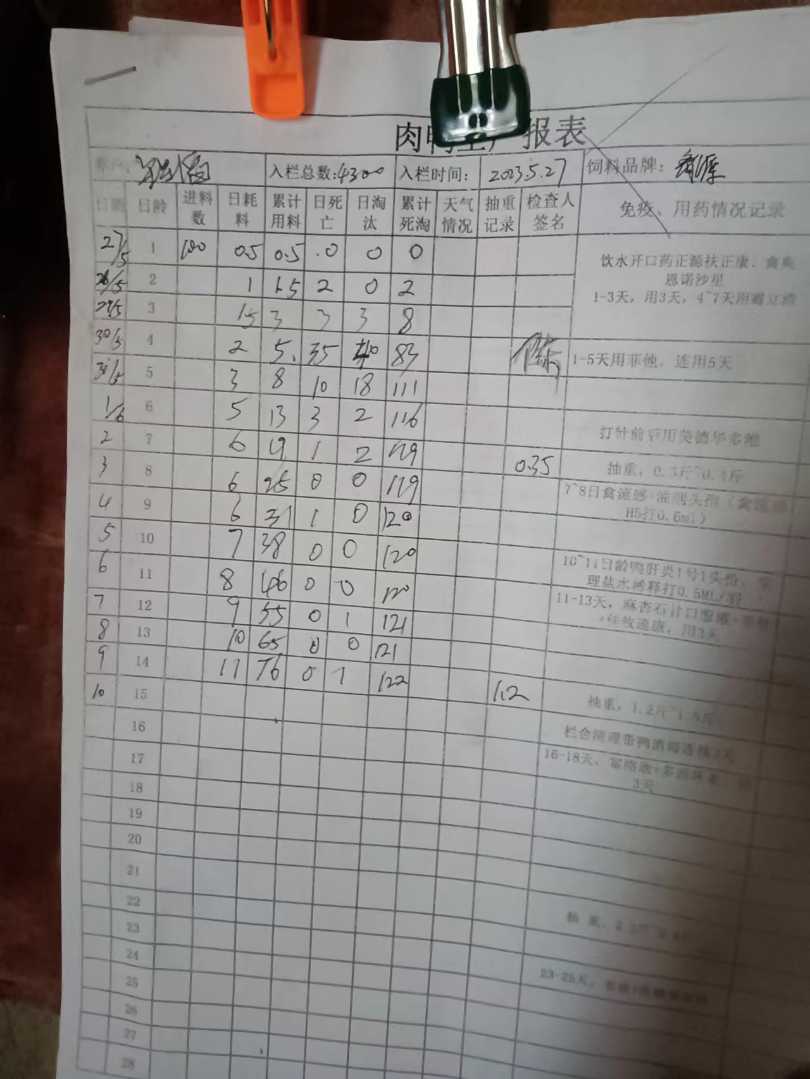 肉鸭生产报表
入栏总数:4300 入栏时间: 2023.5.27 饲料品牌:
日期 日龄 进料数 日耗料 累计用料 日死亡 日淘汰 累计死淘 天气情况 抽重记录 检查人签名 免疫、用药情况记录
27/5 1 100 0.5 0.5 0 0 0 饮水开口药正源扶正康、禽奥
恩诺沙星
28/5 2 1 1.5 2 0 2 1-3天，用3天，4~7天用
29/5 3 1.5 3 3 3 8
30/5 4 2 5. 35 40 83 陈 1-5天用菲他，连用5天
31/5 5 3 8 10 18 111
1/6 6 5 13 3 2 116 打针前后用
2 7 6 19 1 2 119 0.35 抽重，0.3斤~0.4斤
3 8 6 25 0 0 119 7~8日禽流感
4 9 6 31 1 0 120 H5打0.5ml）
5 10 7 38 0 0 120 10~11日龄鸭肝炎1号1头份，生
6 11 8 46 0 0 120 理盐水稀释打0.5ML/羽
7 12 9 55 0 1 121 11-13天，麻杏石甘口服液
8 13 10 65 0 0 121 用3天
9 14 11 76 0 1 122
10 15 1.2 抽重，1.2斤~1.5斤
16
17 16-18天、
3天
18
19
20
21
22 抽重
23
24 23-25天，
25
26
27
28